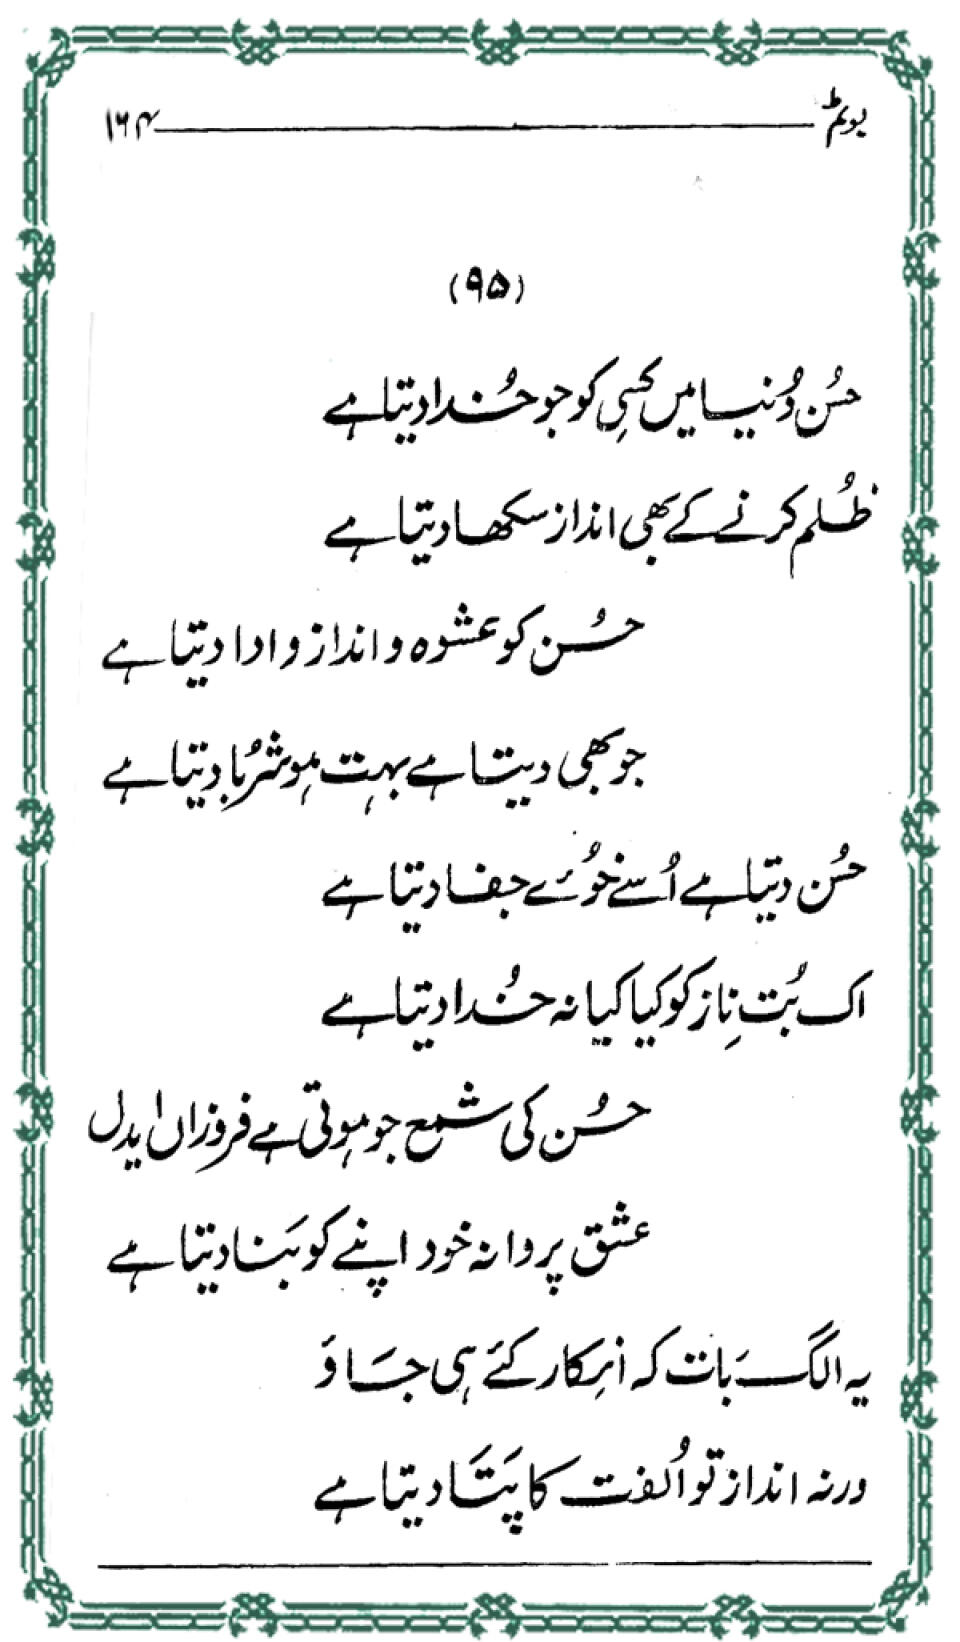 ۱۶۴ بوٹم
(۹۵)
حُسن دُنیا میں کسِی کو جو خُدا دیتا ہے
ظُلم کرنے کے بھی انداز سکھا دیتا ہے
حُسن کو عشوہ و انداز و ادا دیتا ہے
جو بھی دیتا ہے بہت ہوشرُبا دیتا ہے
حُسن دیتا ہے اُسے خوُئے جفا دیتا ہے
اک بُتِ ناز کو کیا کیا نہ خُدا دیتا ہے
حُسن کی شمع جو ہوتی ہے فروزاں اے دل
عشق پروانہ خود اپنے کو بَنا دیتا ہے
یہ الگ بَات کہ انِکار کئے ہی جَاؤ
ورنہ انداز تو اُلفت کا پَتَا دیتا ہے